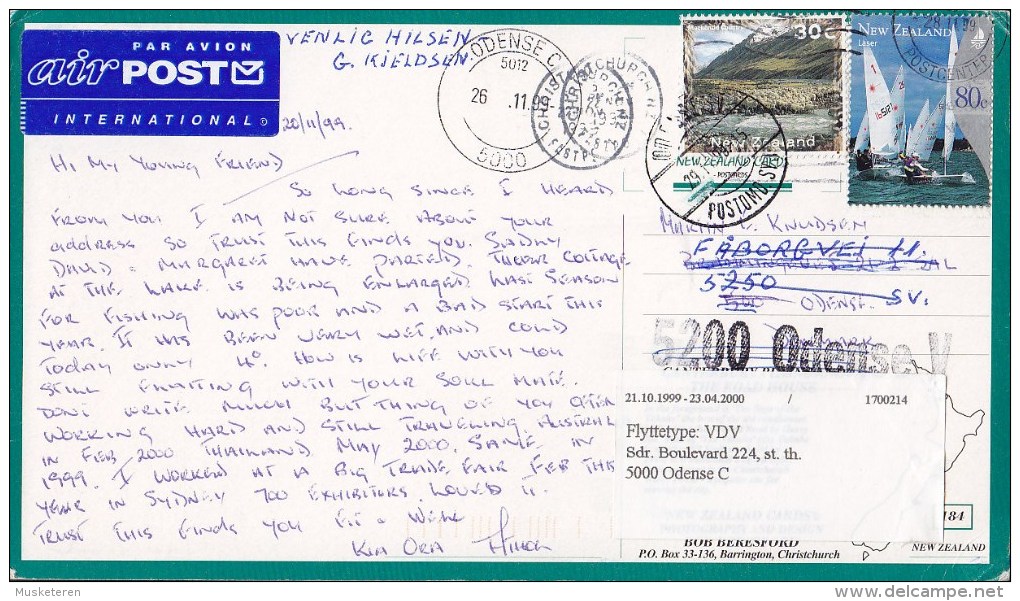 PAR AVION
air POST
INTERNATIONAL
VENLIG HILSEN
G. KJELDSEN
ODENSE C
5012
26 .11.99
5000
CHRISTCHURCH NZ
30c
New Zealand
NEW ZEALAND CARD
POSTOMO
28 11 99
POSTCENTER
NEW ZEALAND
Laser
80c
20/11/99.
HI MY YOUNG FRIEND
SO LONG SINCE I HEARD
FROM YOU I AM NOT SURE ABOUT YOUR
ADDRESS SO TRUST THIS FINDS YOU. SADLY
DAVID & MARGARET HAVE PARTED. THEIR COTTAGE
AT THE LAKE IS BEING ENLARGED LAST SEASON
FOR FISHING WAS POOR AND A BAD START THIS
YEAR. IT HAS BEEN VERY WET AND COLD
TODAY ONLY 4° HOW IS LIFE WITH YOU
STILL WITH YOUR SOUL MATE.
DONT WRITE MUCH BUT THINK OF YOU OFTEN
WORKING HARD AND STILL TRAVELING. AUSTRAL
IN FEB 2000 THAILAND MAY 2000. SAME IN
1999. I WORKED AT A BIG TRADE FAIR FEB THIS
YEAR IN SYDNEY 700 EXHIBITORS. LOVED IT.
TRUST THIS FINDS YOU FIT & WELL
KIA ORA
MARTIN KNUDSEN
FÅBORGVEJ 11.
5250 SV.
ODENSE
5200 Odense V
21.10.1999 - 23.04.2000 / 1700214
Flyttetype: VDV
Sdr. Boulevard 224, st. th.
5000 Odense C
184
BOB BERESFORD
P.O. Box 33-136, Barrington, Christchurch
NEW ZEALAND
Musketeren
delcampe.net